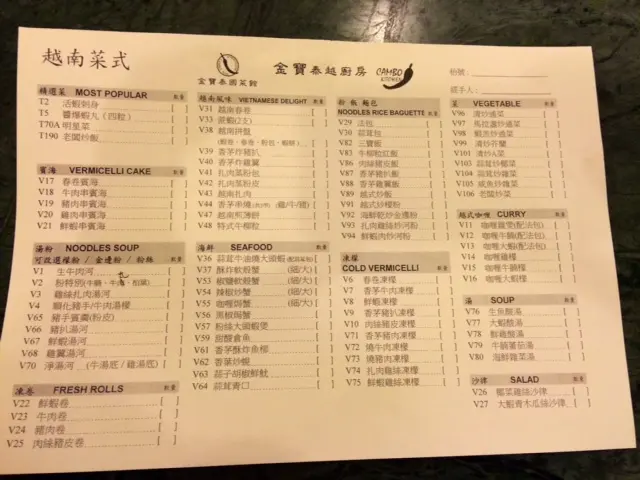 越南菜式
金寶泰國菜館
金寶泰越廚房
CAMBO
KITCHEN
枱號:
經手人:
精選菜 MOST POPULAR 數量
T2 活蝦刺身 [ ]
T5 醬爆蝦丸 (四粒) [ ]
T70A 明星菜 [ ]
T190 老闆炒飯 [ ]
賓海 VERMICELLI CAKE 數量
V17 春卷賓海 [ ]
V18 牛肉串賓海 [ ]
V19 豬肉串賓海 [ ]
V20 雞肉串賓海 [ ]
V21 鮮蝦串賓海 [ ]
湯粉 NOODLES SOUP 數量
可改選檬粉 / 金邊粉 / 粉絲
V1 生牛肉河 [ ]
V2 粉特別 [ ]
V3 雞絲扎肉湯河 [ ]
V4 順化豬手/牛肉湯檬 [ ]
V65 豬手賓粟(粉皮) [ ]
V66 豬扒湯河 [ ]
V67 鮮蝦湯河 [ ]
V68 雞翼湯河 [ ]
V70 淨湯河 (牛湯底 / 雞湯底) [ ]
凍卷 FRESH ROLLS 數量
V22 鮮蝦卷 [ ]
V23 牛肉卷 [ ]
V24 豬肉卷 [ ]
V25 肉絲豬皮卷 [ ]
越南風味 VIETNAMESE DELIGHT 數量
V31 越南春卷 [ ]
V33 蔗蝦(2支) [ ]
V38 越南拼盤 [ ]
V39 香茅炸豬扒 [ ]
V40 香茅炸雞翼 [ ]
V41 扎肉蒸粉包 [ ]
V42 扎肉蒸粉皮 [ ]
V43 越南扎肉 [ ]
V44 香茅串燒 (雞/牛/豬) [ ]
V47 越南煎薄餅 [ ]
V48 特式牛柳粒 [ ]
海鮮 SEAFOOD 數量
V36 蒜茸牛油燒大頭蝦 [ ]
V37 酥炸軟殼蟹 (細/大) [ ]
V53 椒鹽軟殼蟹 (細/大) [ ]
V54 辣椒炒蟹 (細/大) [ ]
V55 咖喱炒蟹 (細/大) [ ]
V56 黑椒焗蟹 [ ]
V57 粉絲大頭蝦煲 [ ]
V59 甜酸倉魚 [ ]
V61 香茅酥炸魚柳 [ ]
V62 香葉炒蜆 [ ]
V63 茄子胡椒鮮魷 [ ]
V64 蒜茸青口 [ ]
粉 飯 麵包
NOODLES RICE BAGUETTE 數量
V29 法包 [ ]
V30 蒜茸包 [ ]
V82 三寶飯 [ ]
V83 牛柳粒紅飯 [ ]
V86 肉絲豬皮飯 [ ]
V87 香茅豬扒飯 [ ]
V88 香茅雞翼飯 [ ]
V89 越式炒飯 [ ]
V91 越式炒檬粉 [ ]
V92 海鮮乾炒金邊粉 [ ]
V93 香茅牛肉炒檬 [ ]
V94 鮮蝦肉炒河粉 [ ]
凍檬
COLD VERMICELLI 數量
V6 春卷凍檬 [ ]
V7 香茅牛肉凍檬 [ ]
V8 鮮蝦凍檬 [ ]
V9 香茅豬扒凍檬 [ ]
V10 肉絲豬皮凍檬 [ ]
V71 香茅雞翼凍檬 [ ]
V72 燒牛肉凍檬 [ ]
V73 燒豬肉凍檬 [ ]
V74 扎肉雞絲凍檬 [ ]
V75 鮮蝦雞絲凍檬 [ ]
菜 VEGETABLE 數量
V96 清炒通菜 [ ]
V97 馬拉盞炒通菜 [ ]
V98 蝦羔炒通菜 [ ]
V99 清炒芥蘭 [ ]
V101 清炒A菜 [ ]
V103 蒜茸炒椰菜 [ ]
V104 蒜茸炒雜菜 [ ]
V105 咸魚炒雜菜 [ ]
V106 老闆炒菜 [ ]
越式咖喱 CURRY 數量
V11 咖喱雞煲(配法包) [ ]
V12 咖喱牛腩(配法包) [ ]
V13 咖喱大蝦(配法包) [ ]
V14 咖喱雞檬 [ ]
V15 咖喱牛腩檬 [ ]
V16 咖喱大蝦檬 [ ]
湯 SOUP 數量
V76 生魚酸湯 [ ]
V77 大蝦酸湯 [ ]
V78 鮮雞酸湯 [ ]
V79 牛腩蕃茄湯 [ ]
V80 海鮮雜菜湯 [ ]
沙律 SALAD 數量
V26 椰菜雞絲沙律 [ ]
V27 大蝦青木瓜絲沙律 [ ]